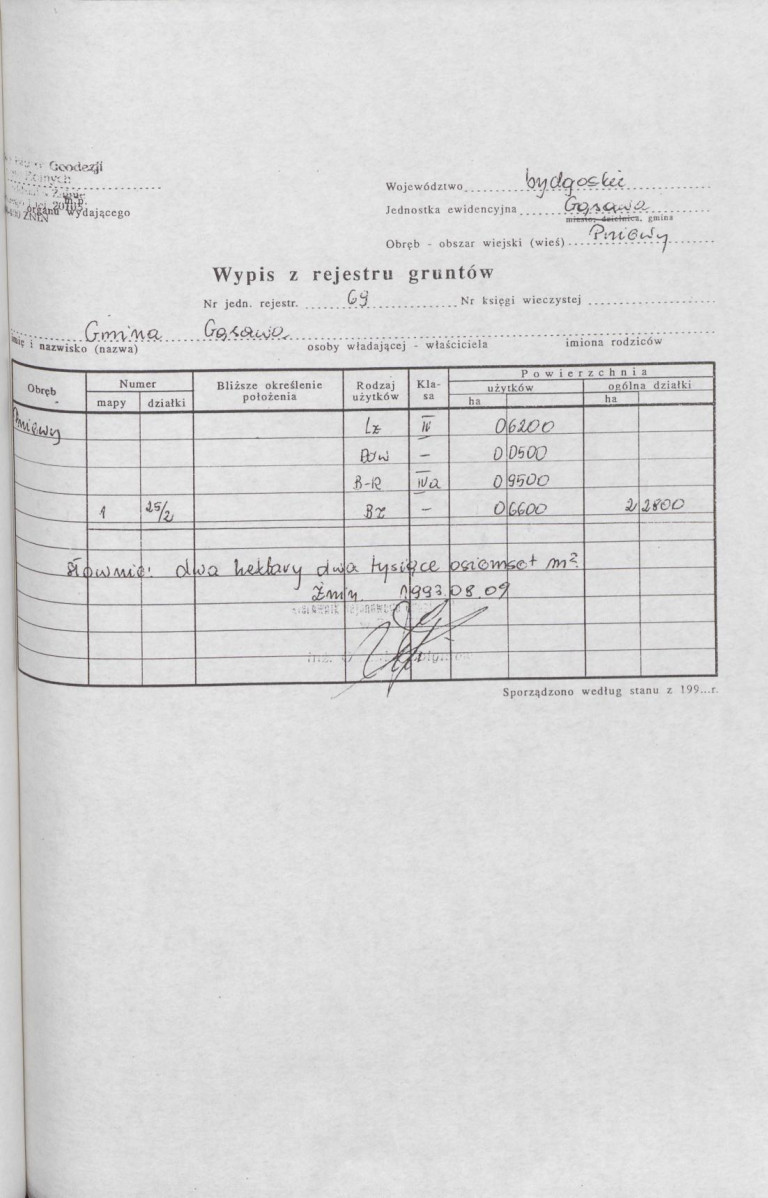 Geodezji
organu wydającego
Województwo bydgoskie
Jednostka ewidencyjna Gąsawa
miasto, dzielnica, gmina
Obręb - obszar wiejski (wieś) Pniewy
Wypis z rejestru gruntów
Nr jedn. rejestr. 69 Nr księgi wieczystej
Gmina Gąsawa
imię i nazwisko (nazwa) osoby władającej - właściciela imiona rodziców
Obręb Numer Bliższe określenie położenia Rodzaj użytków Klasa Powierzchnia
mapy działki użytków ogólna działki
ha ha
Pniewy Lz IV 0 6200
– 0 0500
B-R IVa 0 9500
1 25/2 Bz – 0 6600 2 2800
słownie: dwa hektary dwa tysiące osiemset m²
Żnin 1993.08.09
Sporządzono według stanu z 199...r.